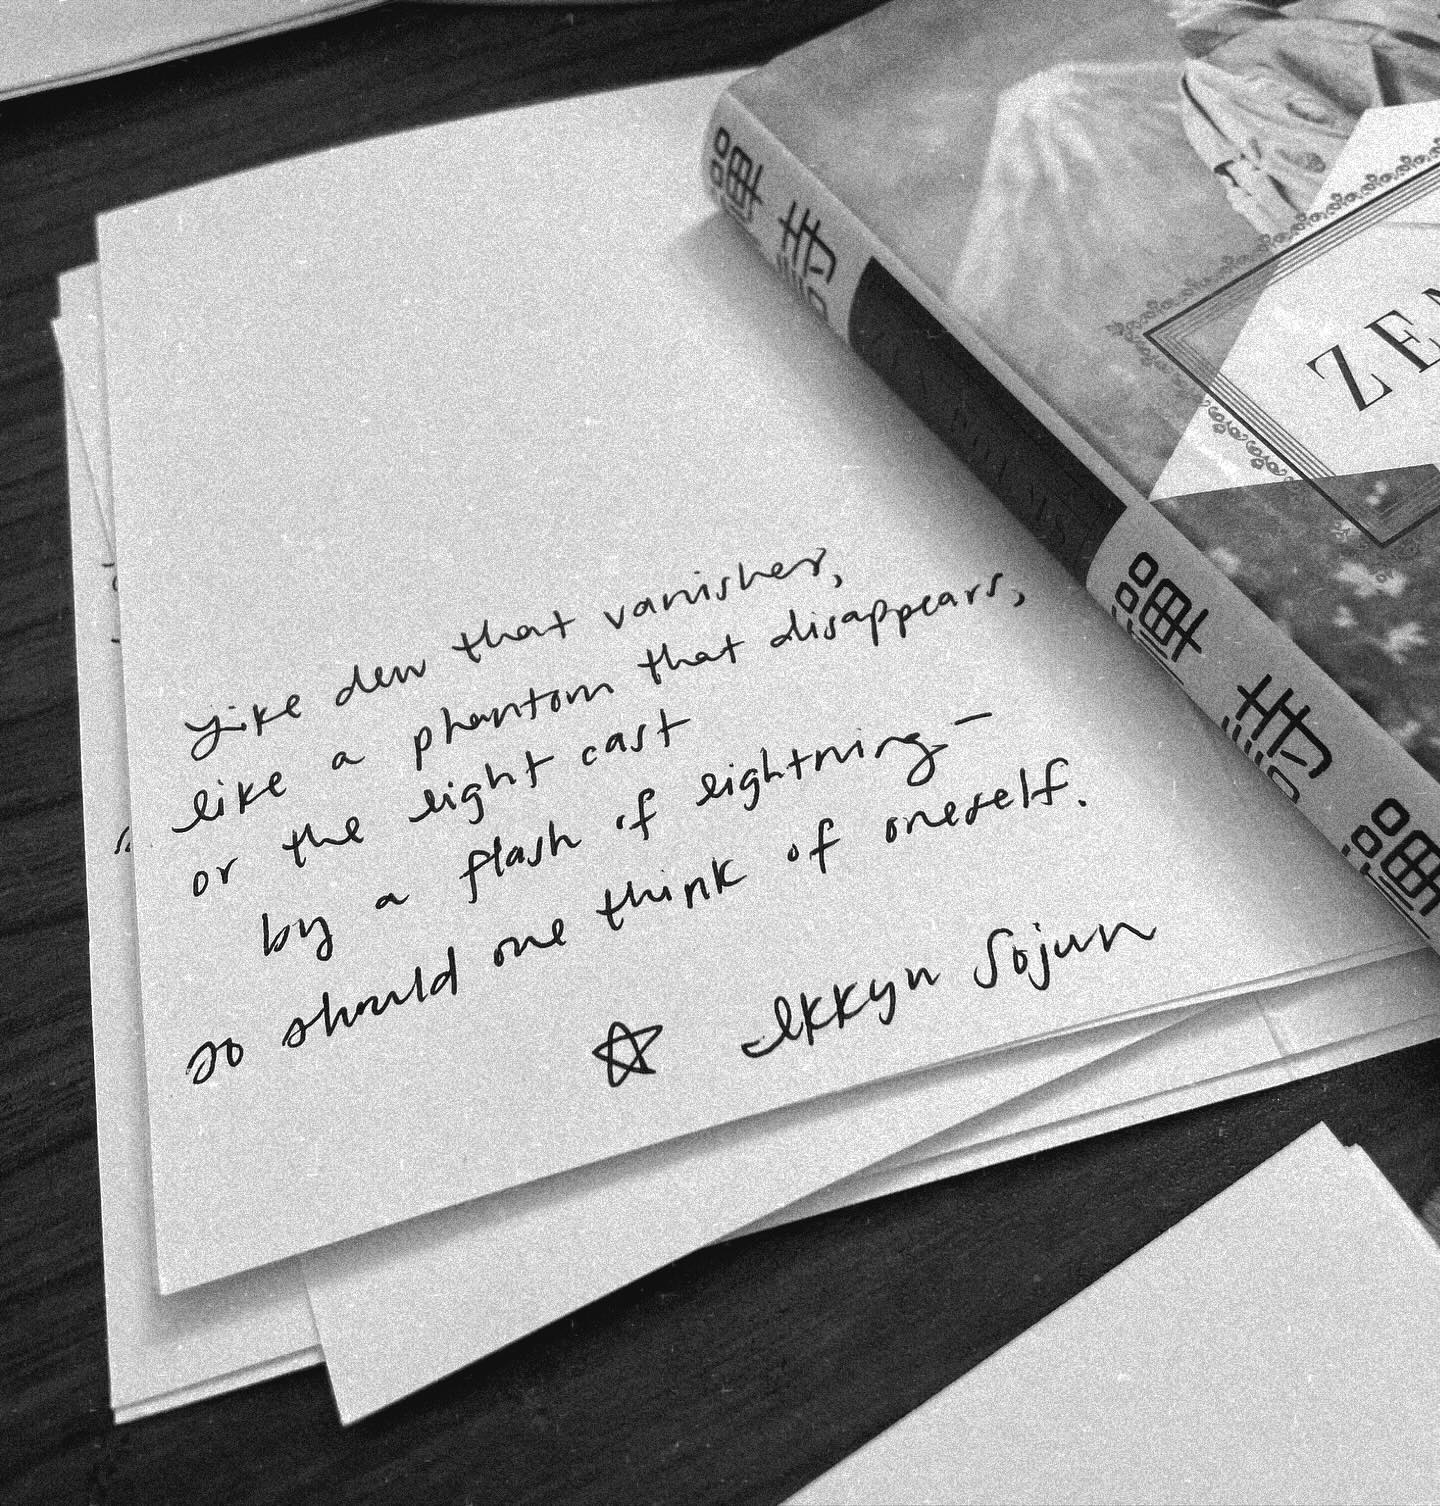 Like dew that vanishes,
like a phantom that disappears,
or the light cast
by a flash of lightning—
so should one think of oneself.
Ikkyu Sojun
ZEN